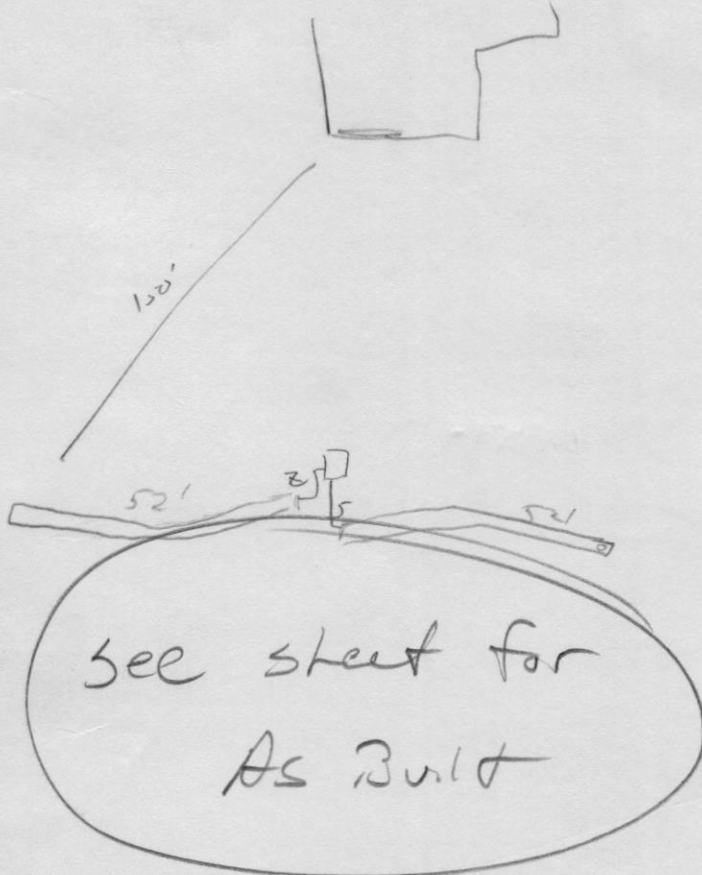 100'
52'
52'
See sheet for
As Built